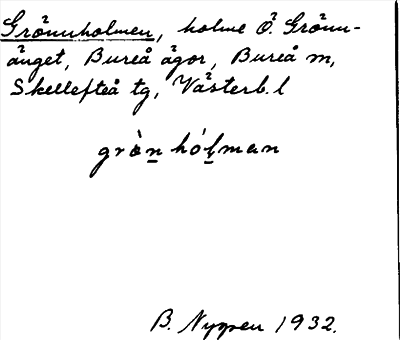 Grönnholmen, holme Ö. Grönn-
änget, Bureå ägor, Bureå m,
Skellefteå tg, Västerb. l
grònhólman
B. Nygren 1932.